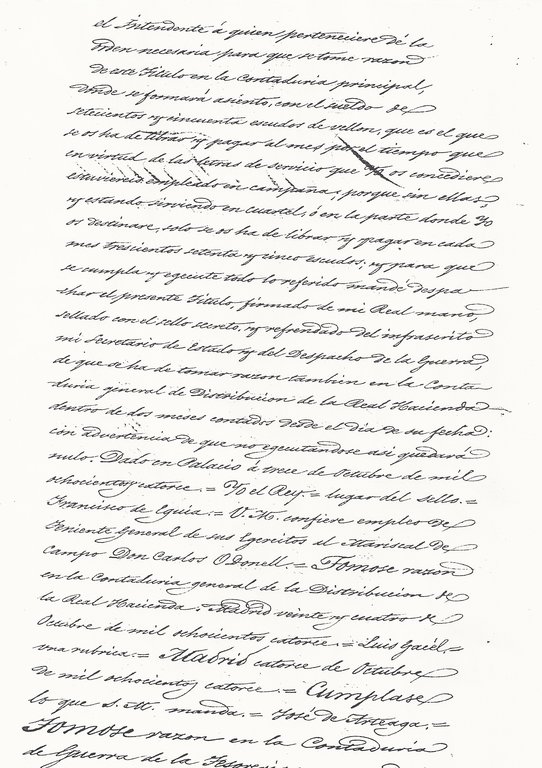 el Intendente á quien perteneciere dé la
orden necesaria para que se tome razon
de este Titulo en la Contaduria principal,
donde se formará asiento, con el sueldo de
setecientos y cincuenta escudos de vellon, que es el que
se os ha de librar y pagar al mes por el tiempo que
en virtud de las letras de servicio que os concediere
estuviereis empleado en campaña; porque sin ellas,
y estando sirviendo en cuartel, ó en la parte donde Yo
os destinare, solo se os ha de librar y pagar en cada
mes trescientos setenta y cinco escudos; y para que
se cumpla y egecute todo lo referido mandé despa-
char el presente Titulo, firmado de mi Real mano,
sellado con el sello secreto, y refrendado del infrascrito
mi Secretario de Estado y del Despacho de la Guerra,
de que se ha de tomar razon tambien en la Conta-
duria general de Distribucion de la Real Hacienda
dentro de dos meses contados desde el dia de su fecha:
con advertencia de que no egecutandose asi quedará
nulo. Dado en Palacio á trece de Octubre de mil
ochocientos y catorce. = Yo el Rey. = lugar del sello. =
Francisco de Eguia. = V. M. confiere empleo de
Teniente General de sus Egercitos al Mariscal de
Campo Don Carlos O Donell. = Tomose razon
en la Contaduria general de la Distribucion de
la Real Hacienda. Madrid veinte y cuatro de
Octubre de mil ochocientos catorce. = Luis Gaiel. =
una rubrica. = Madrid catorce de Octubre
de mil ochocientos y catorce. = Cumplase
lo que S. M. manda. = José de Arteaga. =
Tomose razon en la Contaduria
de Guerra de la